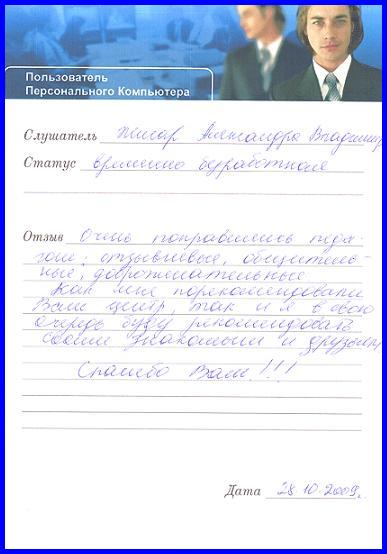 Пользователь
Персонального Компьютера
Слушатель Писар Александра Владимир
Статус временно безработная
Отзыв Очень понравились педа-
гоги; отзывчивые, общитель-
ные, доброжелательные
Как мне порекомендовали
Ваш центр, так и я в свою
очередь буду рекомендовать
своим знакомым и друзьям
Спасибо Вам!!!
Дата 28.10.2009г.